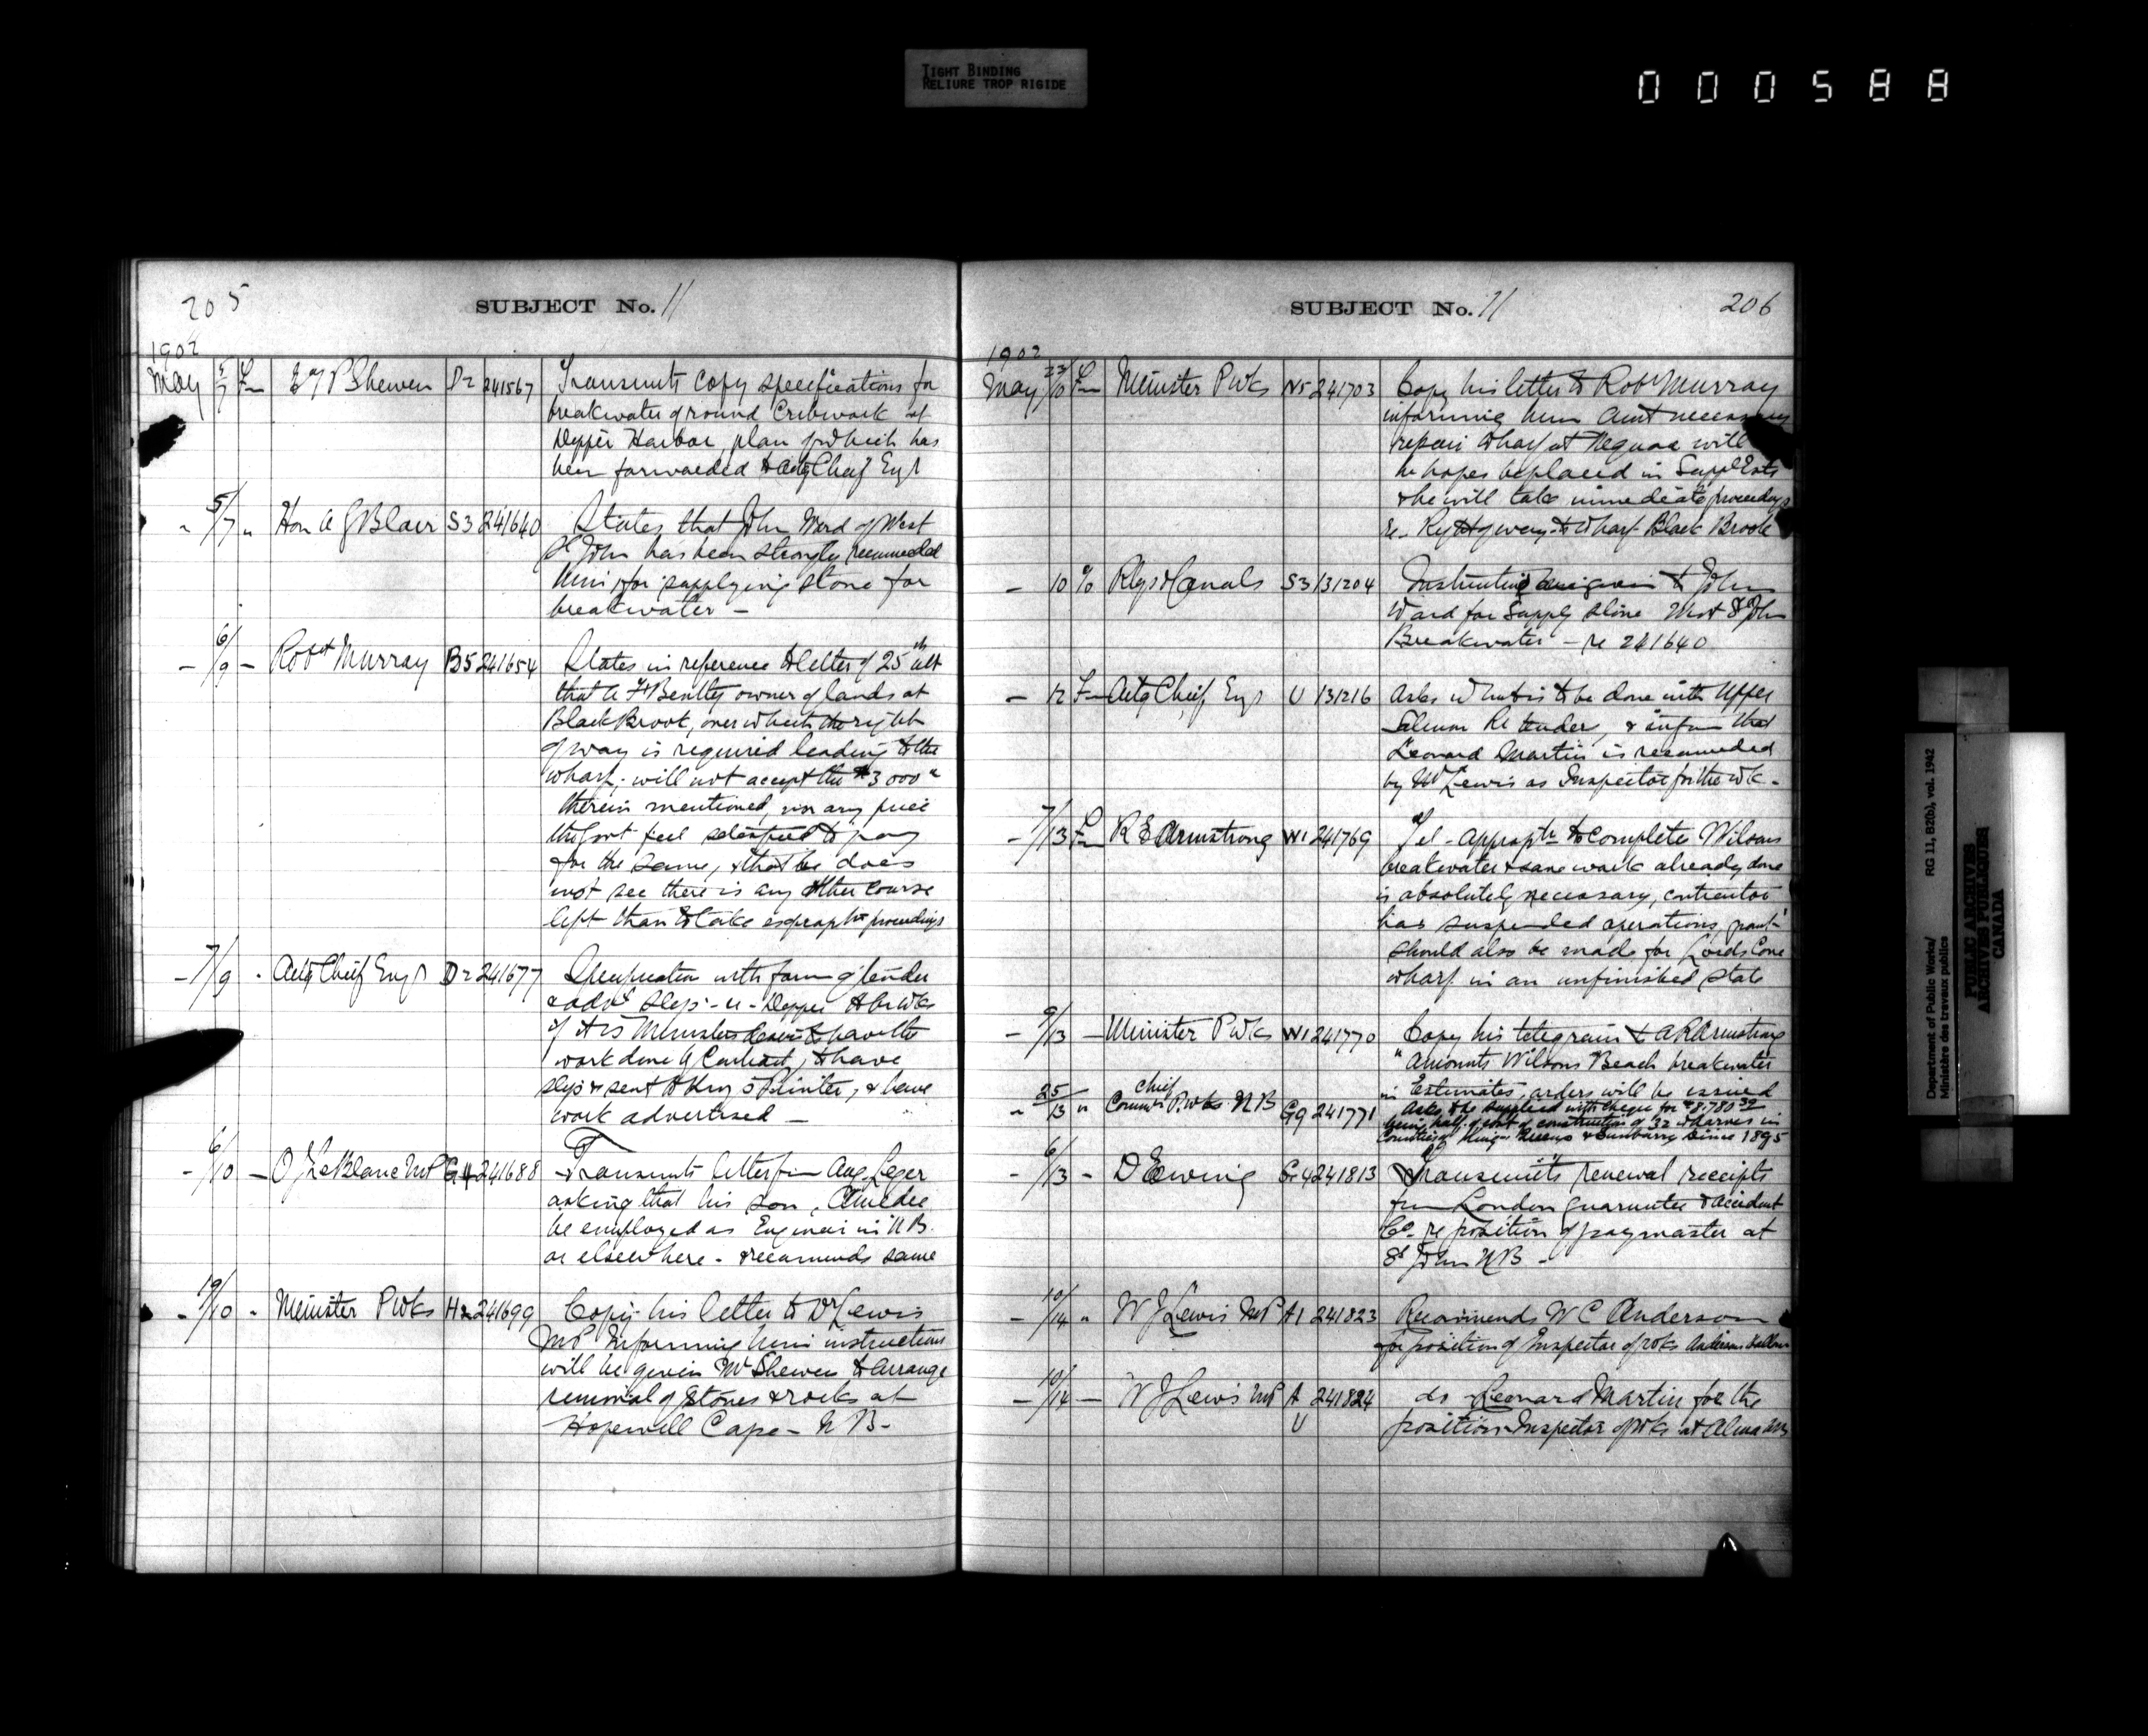 TIGHT BINDING
RELIURE TROP RIGIDE
000588
205
SUBJECT No. 11
1902
May 5/7 Fm E T P Shewen D2 241567 Transmits copy specifications for
breakwater ground Cribwork at
Dipper Harbor, plan of which has
been forwarded to Actg Chief Engr
" 5/7 " Hon A G Blair S3 241640 States that John Ward of West
St John has been strongly recommended
him for supplying stone for
breakwater -
- 6/9 - Robt Murray B5 241654 States in reference to letter of 25th ult
that A F Bently owner of lands at
Black Brook, over which the right
of way is required leading to the
wharf, will not accept the $3000
therein mentioned, nor any price
the Govt feel to pay
for the same, & that he does
not see there is any other course
left than to take proceedings
- 7/9 - Actg Chief Engr D2 241677 Specification with form of tender
& advt slips - re - Dipper Hbr Wks
if it is Ministers desire to have the
work done by Contract, to have
slips sent to King's Printer, & have
work advertised -
- 6/10 - O J LeBlanc MP G4 241688 Transmits letter fm Aug Leger
asking that his son, Amedee
be employed as Engineer in N B.
or elsewhere - & recommends same
- 19/10 " Minister P Wks H2 241699 Copy his letter to Dr Lewis
MP informing him instructions
will be given Mr Shewen to arrange
removal of stones & rocks at
Hopewell Cape - N B -
SUBJECT No. 11
206
1902
May 23/10 Fm Minister P Wks N5 241703 Copy his letter to Robt Murray
informing him amt necessary
repair wharf at Neguac will
he hopes be placed in Suppl Ests
& he will take immediate proceedings
re - Right of way to wharf Black Brook
- 10 % Rlys & Canals S3 131204 Instructions given to John
Ward for Supply Stone West St John
Breakwater - re 241640
- 12 Fm Actg Chief Engr U 131216 Asks what is to be done with Upper
Salmon Rr tender, & inform that
Leonard Martin is recommended
by Mr Lewis as Inspector for the wk -
- 7/13 Fm R E Armstrong W1 241769 Tel - Appropn to complete Wilsons
breakwater & save work already done
is absolutely necessary, contractor
has suspended operations, grant
should also be made for Lords Cove
wharf in an unfinished state
- 9/13 - Minister P Wks W1 241770 Copy his telegram to R E Armstrong
" Amounts Wilsons Beach breakwater
in Estimates, orders will be issued
" 25/13 " Chief Commr P. Wks. N B Gg 241771 Asks to be supplied with cheque for $8,780
being half of cost of construction of 32 wharves in
Counties of Kings Queens & Sunbury since 1895
- 6/13 - D Ewing G4 241813 Transmits renewal receipts
from London Guarantee & Accident
Co. re position of paymaster at
St John N B -
- 10/14 " W J Lewis MP A1 241823 Recommends W C Anderson
for position of Inspector of wks Anderson Hollow
- 10/14 - W J Lewis MP A U 241824 do Leonard Martin for the
position Inspector of Wks at Alma
Department of Public Works/
Ministère des travaux publics
RG 11, B2(b), vol. 1942
PUBLIC ARCHIVES
ARCHIVES PUBLIQUES
CANADA